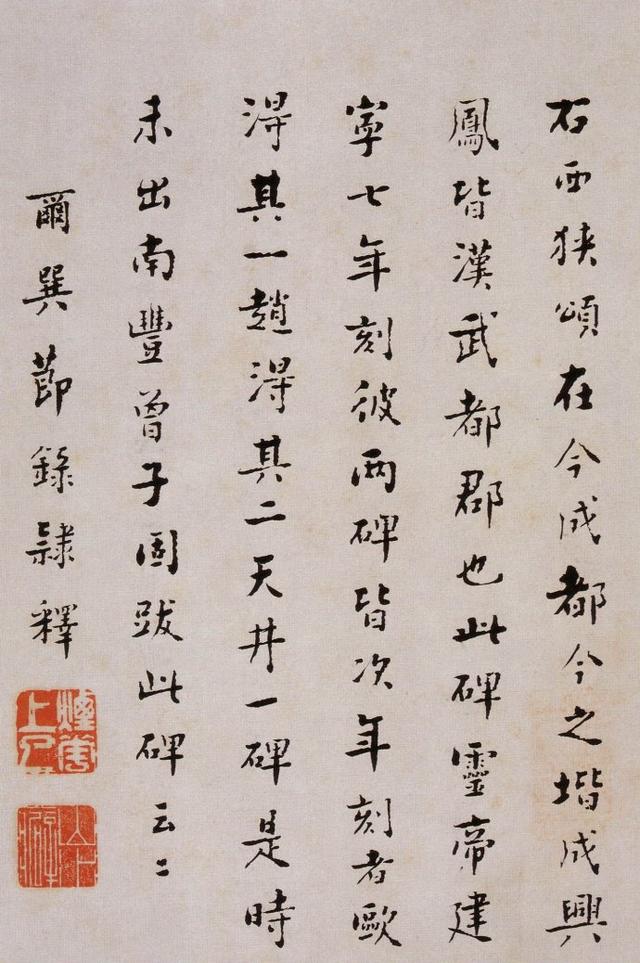 右西狹頌在今成都今之堦成興
鳳皆漢武都郡也此碑靈帝建
寧七年刻彼兩碑皆次年刻者歐
淂其一趙淂其二天井一碑是時
未出南豐曾子固跋此碑云〻
爾巽節錄隸釋